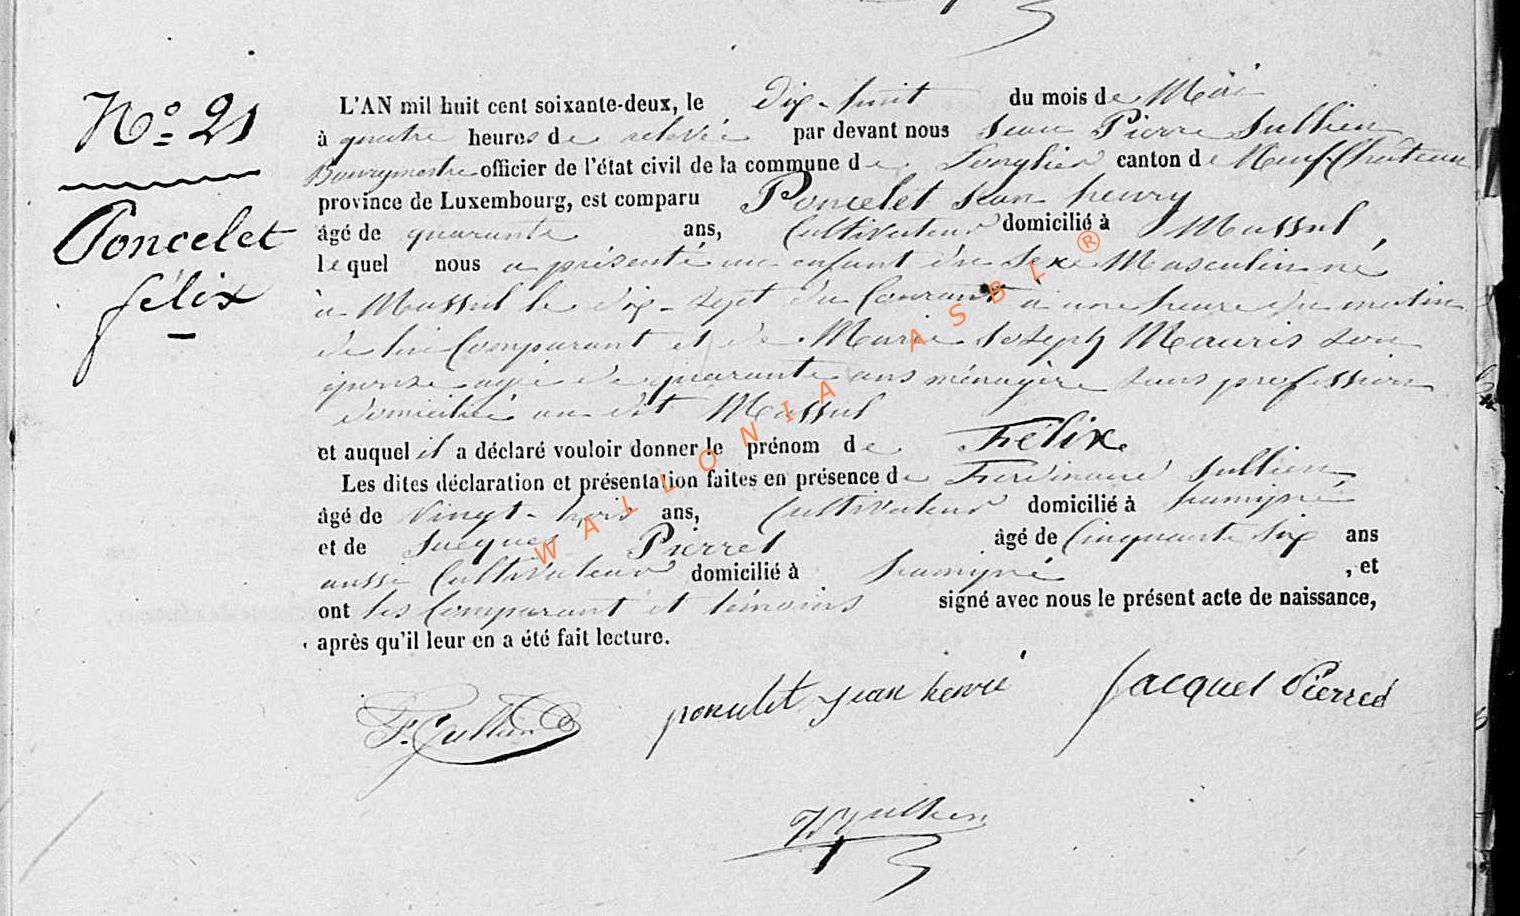 N° 21
Poncelet
félix
L'AN mil huit cent soixante-deux, le dix-huit du mois de Mai
à quatre heures de relevée par devant nous Jean Pierre Jullien
Bourgmestre officier de l'état civil de la commune de Longlier canton de Neufchâteau
province de Luxembourg, est comparu Poncelet Jean henry
âgé de quarante ans, Cultivateur domicilié à Massul
lequel nous a présenté un enfant du Sexe Masculin né
à Massul le dix-sept du Courant à une heure du matin
de lui Comparant et de Marie Joseph Mauris son
épouse agée de quarante ans ménagère sans profession
domiciliée au dit Massul
et auquel il a déclaré vouloir donner le prénom de Félix
Les dites déclaration et présentation faites en présence de Ferdinand Jullien
âgé de Vingt-trois ans, Cultivateur domicilié à hamipré
et de Jacques Pierret âgé de Cinquante six ans
aussi Cultivateur domicilié à hamipré, et
ont les Comparant et témoins signé avec nous le présent acte de naissance,
après qu'il leur en a été fait lecture.
F. Jullien poncelet jean henri Jacques Pierret
Jullien
WALLONIA ASBL ®